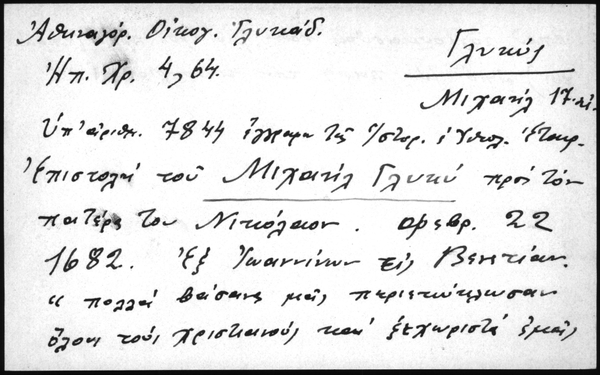 Ἀθηναγόρ. Οἰκογ. Γλυκάδ.
Ἠπ. Χρ. 4, 64.
Γλυκύς
Μιχαήλ 17.
Ὑπ' ἀριθμ. 7844 ἔγγραφον τῆς Ἱστορ. Ἐθνολ. Ἑταιρ.
Ἐπιστολή τοῦ Μιχαήλ Γλυκύ πρός τόν
πατέρα του Νικόλαον. Φεβρ. 22
1682. Ἐξ Ἰωαννίνων εἰς Βενετίαν.
"πολλά βάσανα μᾶς περιετύκλωσαν
ὅλους τούς χριστιανούς καί ξεχωριστά ἐμᾶς